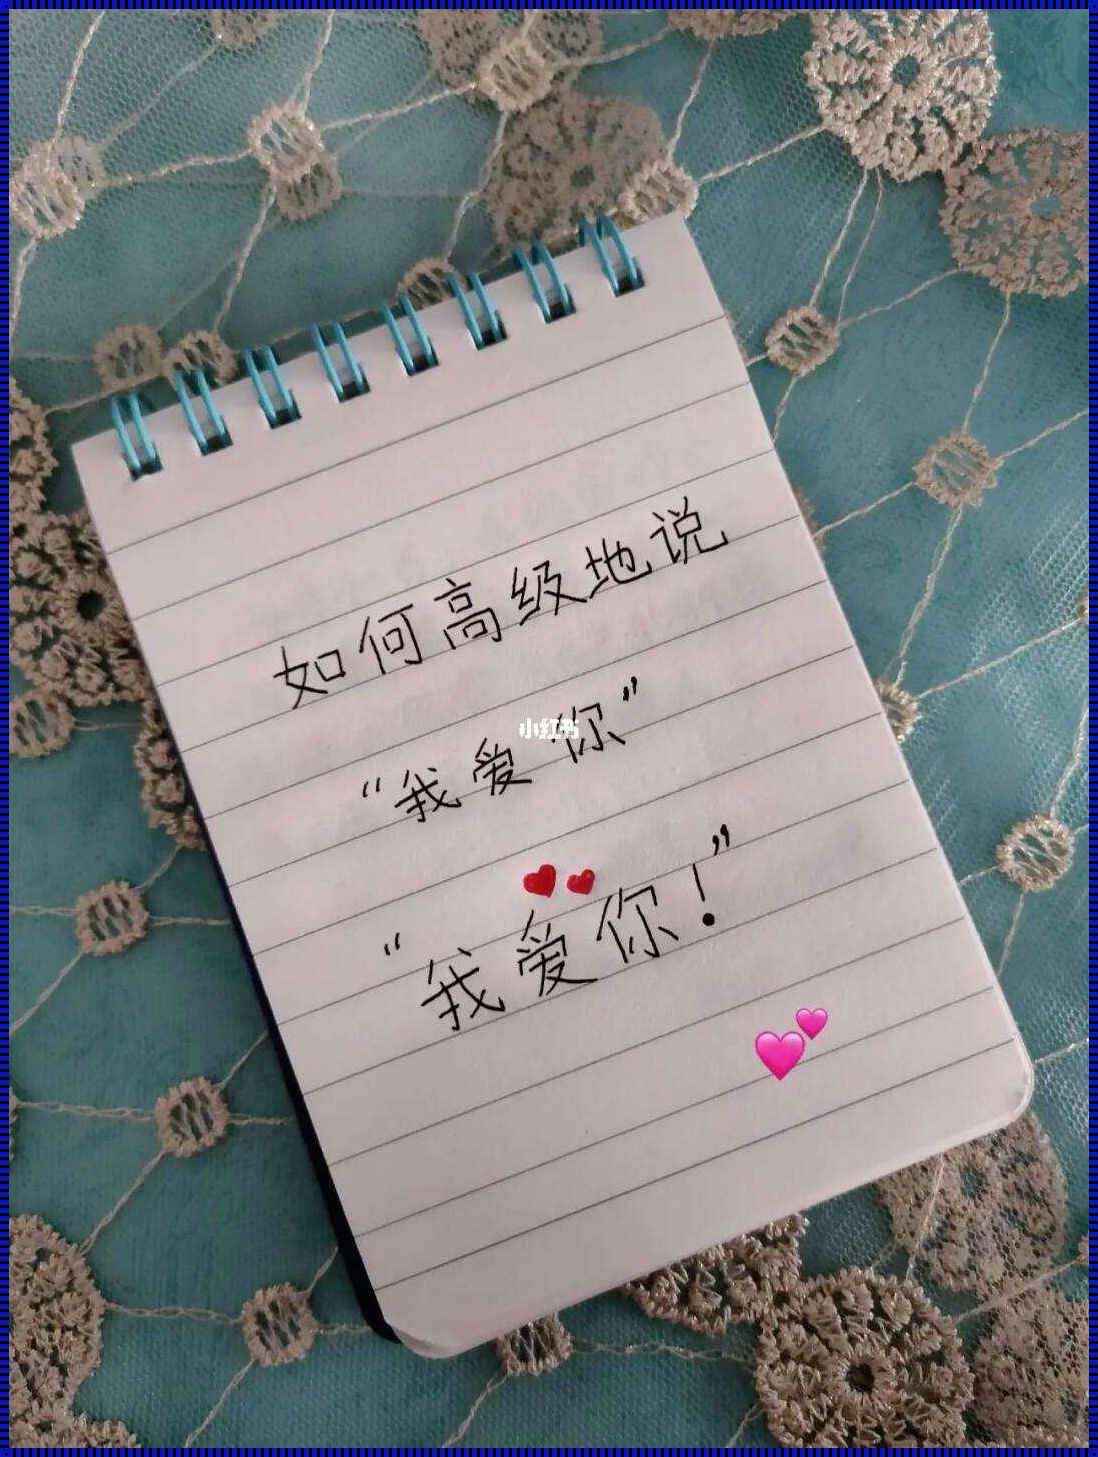 如何高级地说
“我爱你”
小红书
“我爱你！”